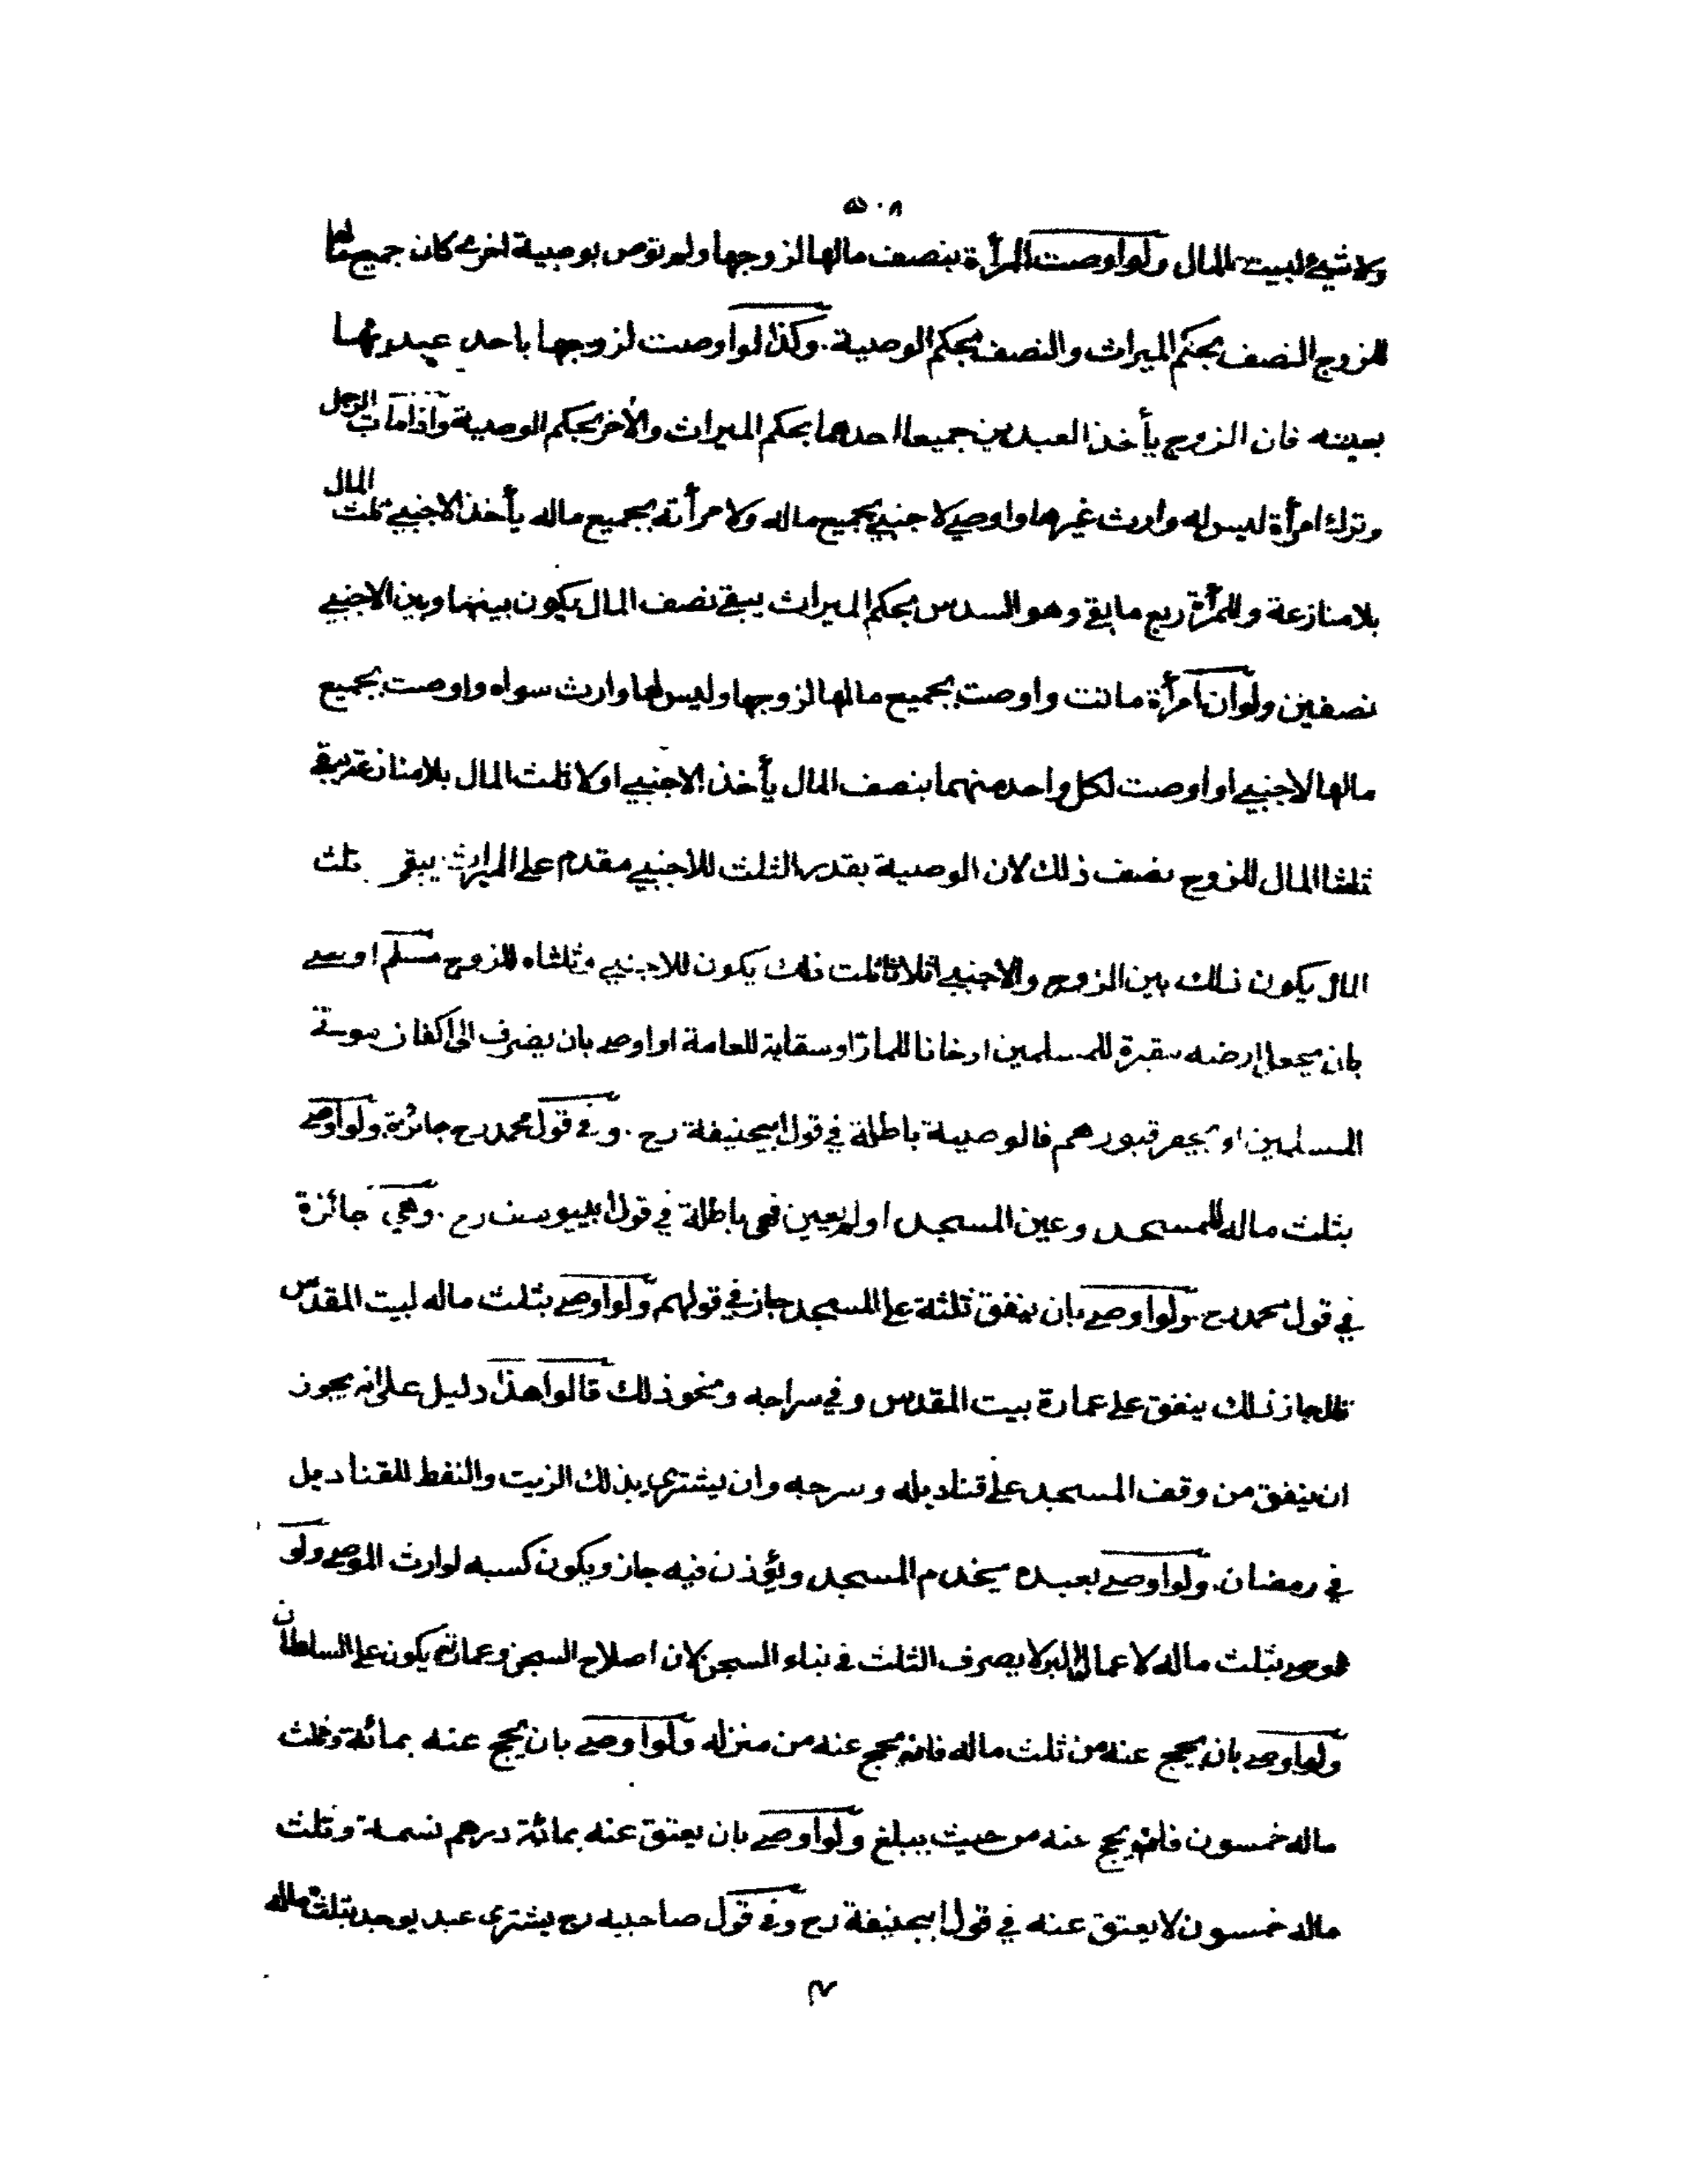 ٥٠٨
ولا شيئ لبيت المال ولو اوصت المرأة بنصف مالها لزوجها ولم توص بوصية اخرى كان جميع مالها
للزوج النصف بحكم الميراث والنصف بحكم الوصية . وكذا لو اوصت لزوجها باحد عبديها
بعينه فان الزوج يأخذ العبدين جميعا احدهما بحكم الميراث والأخر بحكم الوصية واذا مات الرجل
وترك امرأة ليس له وارث غيرها واوصى لاجنبي بجميع ماله ولامرأته بجميع ماله يأخذ الاجنبي ثلث المال
بلا منازعة وللمرأة ربع ما بقي وهو السدس بحكم الميراث يبقى نصف المال يكون بينها وبين الاجنبي
نصفين ولو ان امرأة ماتت واوصت بجميع مالها لزوجها وليس لها وارث سواه واوصت بجميع
مالها لاجنبي او اوصت لكل واحد منهما بنصف المال يأخذ الاجنبي اولا ثلث المال بلا منازعة يبقى
ثلثا المال للزوج نصف ذلك لان الوصية بقدر الثلث للاجنبي مقدم على الميراث يبقى ثلث
المال يكون ذلك بين الزوج والاجنبي اثلاثا ثلث ذلك يكون للاجنبي وثلثاه للزوج مسلم اوصى
بان يجعل ارضه مقبرة للمسلمين او خانا للمارة او سقاية للعامة او اوصى بان يصرف الى اكفان موتى
المسلمين او يحفر قبورهم فالوصية باطلة في قول ابيحنيفة رح . وفي قول محمد رح جائزة ولو اوصى
بثلث ماله للمسجد وعين المسجد او لم يعين فهي باطلة في قول ابييوسف رح . وهي جائزة
في قول محمد رح ولو اوصى بان ينفق ثلثه على المسجد جاز في قولهم ولو اوصى بثلث ماله لبيت المقدس
قال جاز ذلك ينفق على عمارة بيت المقدس وفي سراجه ونحو ذلك قالوا هذا دليل على انه يجوز
ان ينفق من وقف المسجد على قناديله وسرجه وان يشترى بذلك الزيت والنفط للقناديل
في رمضان . ولو اوصى بعبده يخدم المسجد ويؤذن فيه جاز ويكون كسبه لوارث الموصى ولو
اوصى بثلث ماله لاعمال البر لا يصرف الثلث في بناء السجن لان اصلاح السجن وعمارته يكون على السلطان
ولو اوصى بان يحج عنه من ثلث ماله فانه يحج عنه من منزله ولو اوصى بان يحج عنه بمائة وثلث
ماله خمسون فانه يحج عنه من حيث يبلغ ولو اوصى بان يعتق عنه بمائة درهم نسمة وثلث
ماله خمسون لا يعتق عنه في قول ابيحنيفة رح وفي قول صاحبيه رح يشترى عبد يوجد بثلث ماله